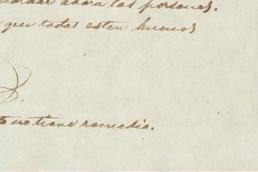 ahora las personas.
que todas esten buenos
no tiene remedio.